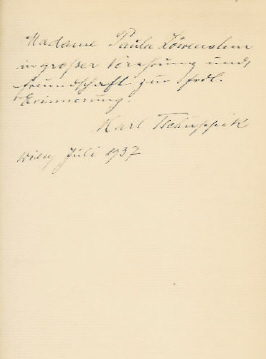 Madame Paula Löwenstein
in großer Verehrung und
Freundschaft zur frdl.
Erinnerung.
Karl Tschuppik
Wien, Juli 1937